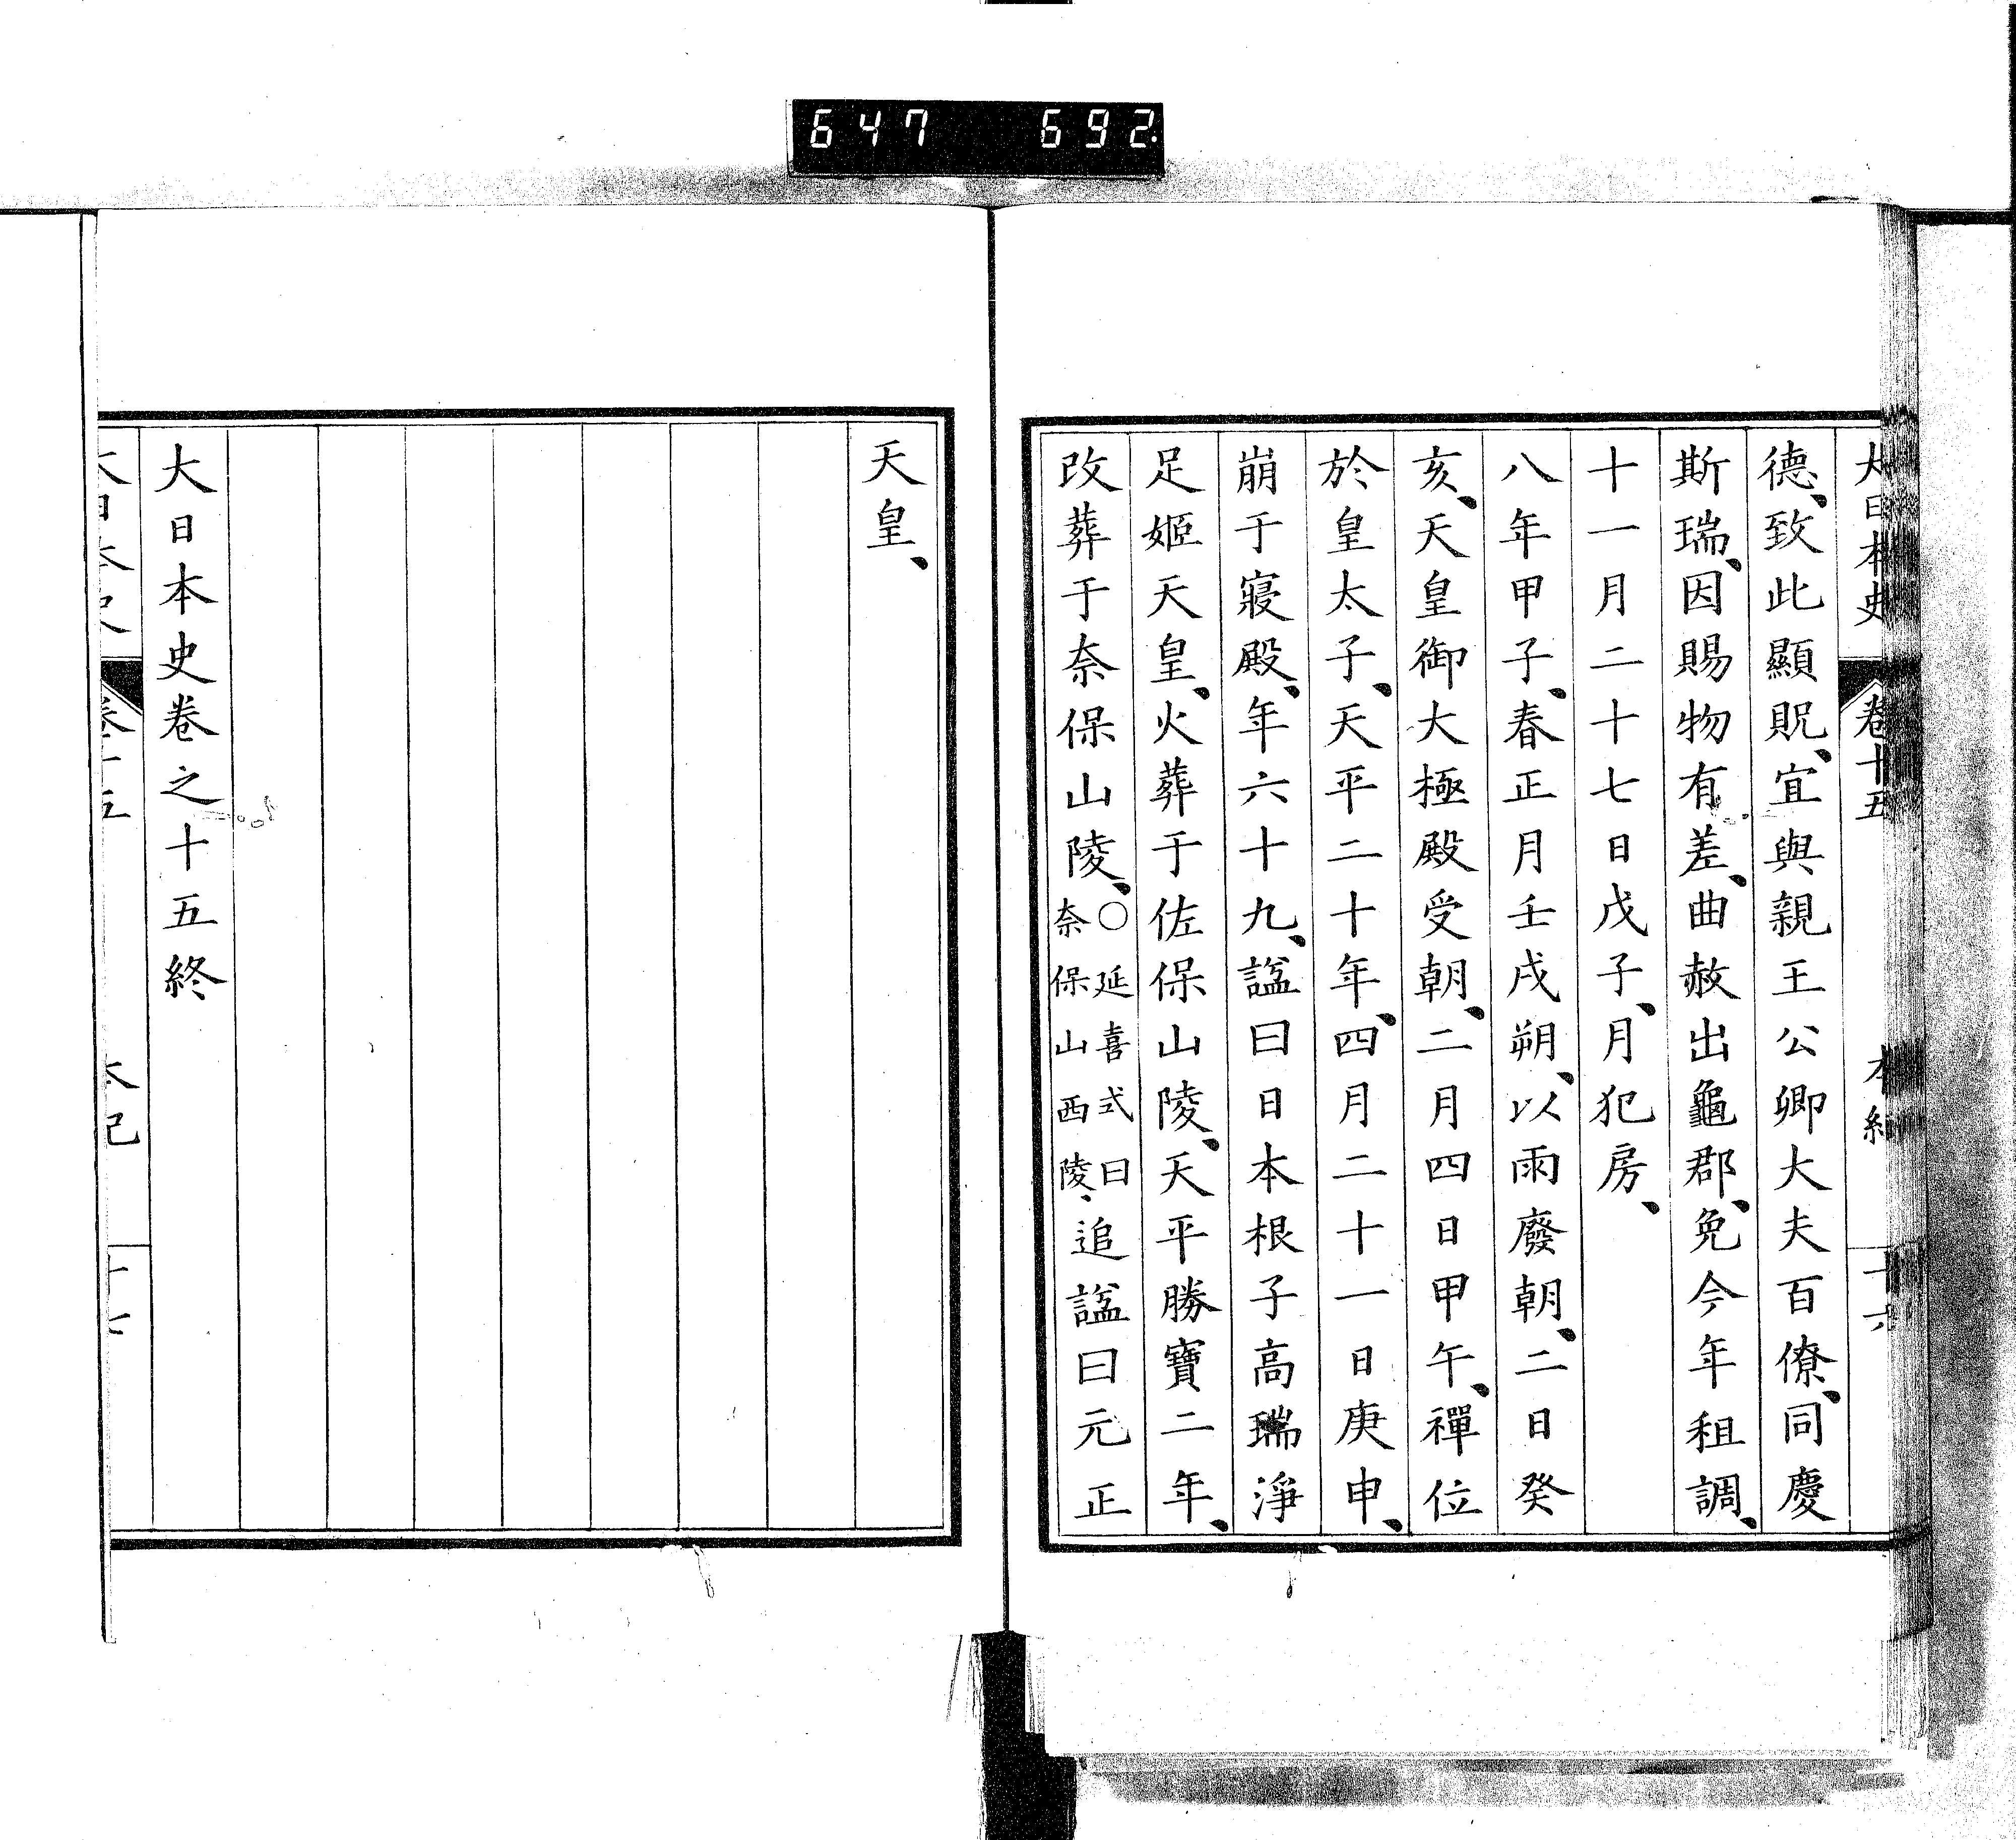 647 692
大日本史 卷十五 本紀 十六
德、致此顯貺、宜與親王公卿大夫百僚、同慶
斯瑞、因賜物有差、曲赦出龜郡、免今年租調、
十一月二十七日戊子、月犯房、
八年甲子、春正月壬戌朔、以雨廢朝、二日癸
亥、天皇御大極殿受朝、二月四日甲午、禪位
於皇太子、天平二十年、四月二十一日庚申、
崩于寢殿、年六十九、謚曰日本根子高瑞淨
足姬天皇、火葬于佐保山陵、天平勝寶二年、
改葬于奈保山陵、○延喜式曰奈保山西陵、追謚曰元正
天皇、
大日本史卷之十五終
大日本史 卷十五 本紀 十七